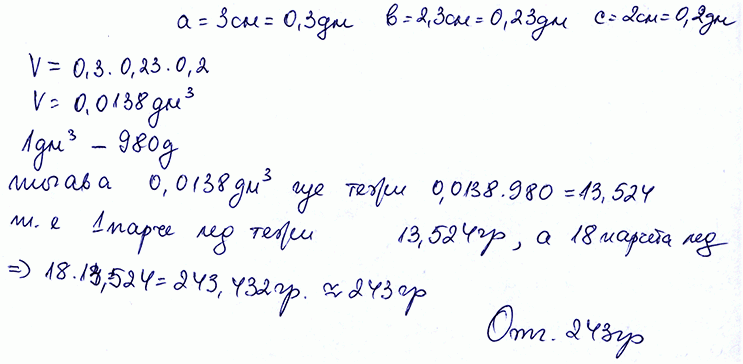 a = 3см = 0,3дм в = 2,3см = 0,23дм с = 2см = 0,2дм
V = 0,3 . 0,23 . 0,2
V = 0,0138 дм³
1дм³ – 980g
тогава 0,0138 дм³ ще тежи 0,0138 . 980 = 13,524
т. е 1 парче лед тежи 13,524гр, а 18 парчета лед
=> 18 . 13,524 = 243,432гр. ≈ 243гр
Отг. 243гр